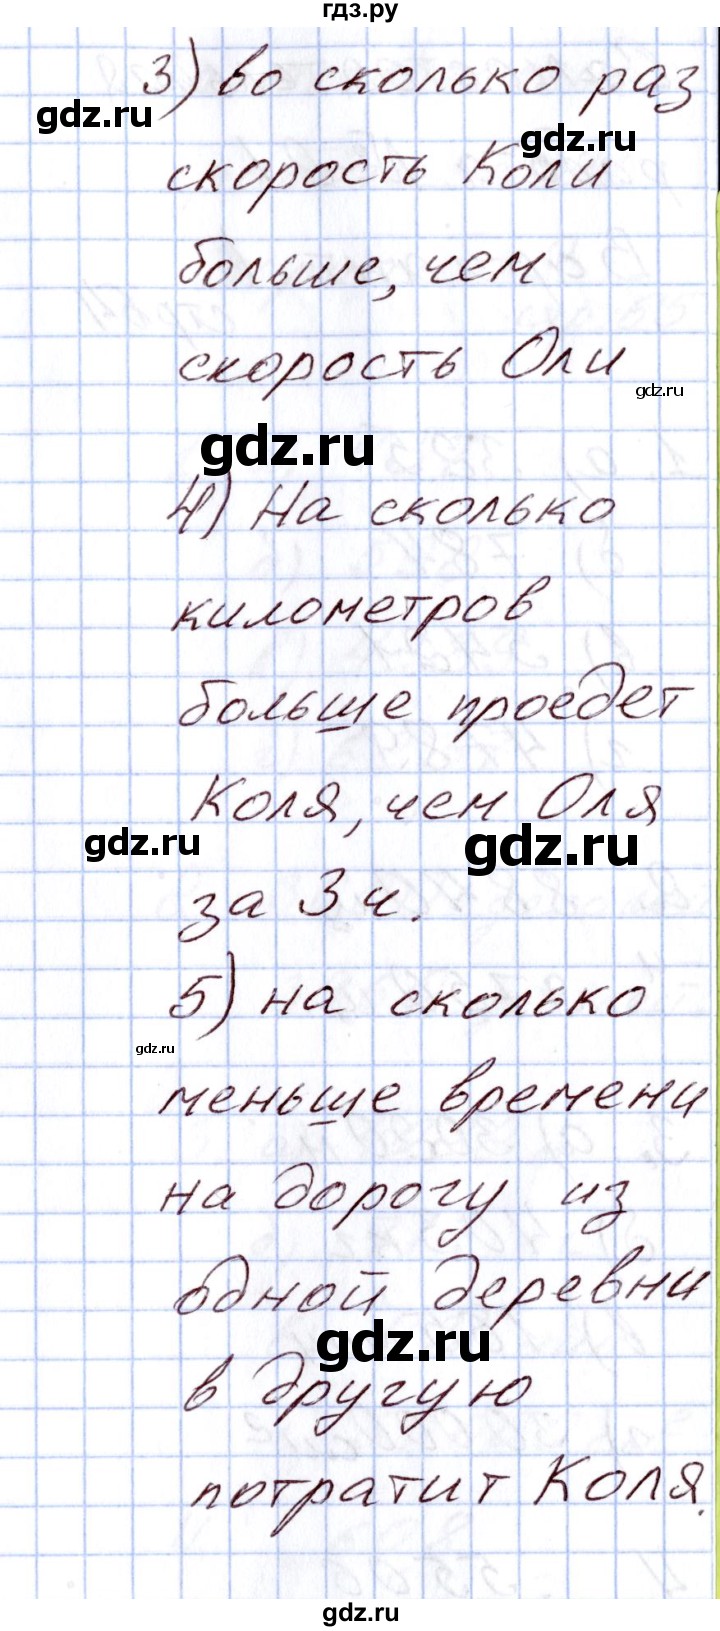 гдз.ру
3) во сколько раз
gdz.ru
gdz.ru
скорость Коли
больше, чем
скорость Оли
gdz.ru
gdz.ru
4) На сколько
километров
больше проедет
Коля, чем Оля
gdz.ru
gdz.ru
за 3 ч.
5) на сколько
gdz.ru
меньше времени
на дорогу из
одной деревни
gdz.ru
в другую
потратит Коля.
gdz.ru